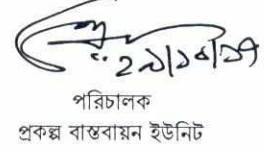 পরিচালক
প্রকল্প বাস্তবায়ন ইউনিট